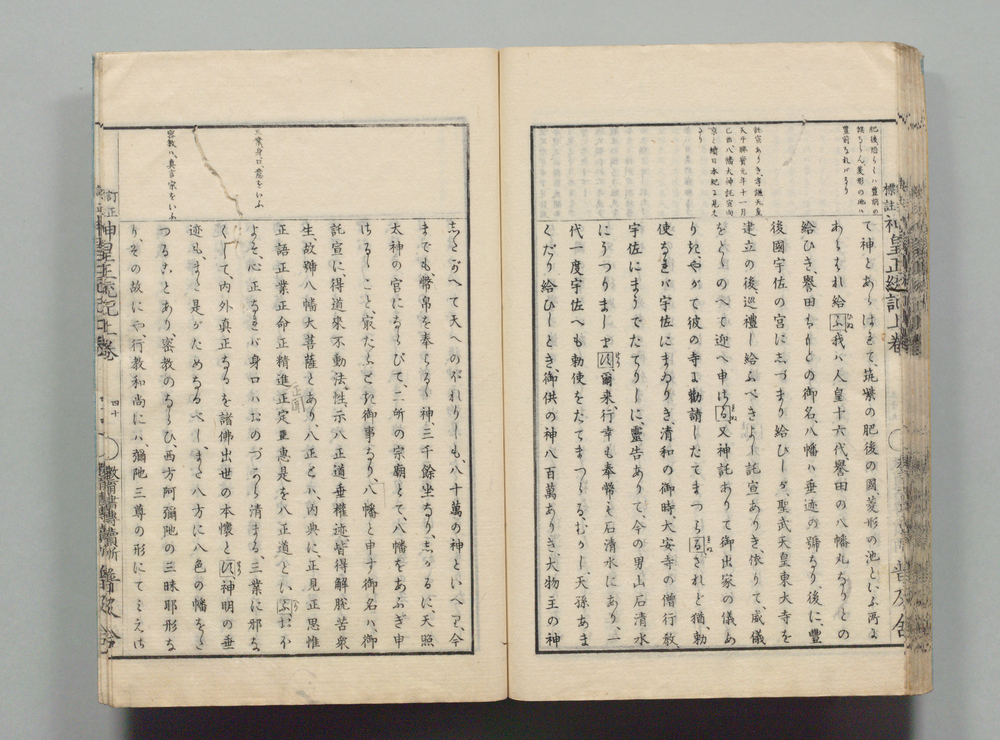 肥後恐らくハ豊前の
誤ならん菱形の池ハ
豊前なれバなり
託宣ありき、孝謙天皇
天平勝寶元年十一月
己酉八幡大神託宣向
京と續日本紀に見え
たり
て神とあらはれて筑紫の肥後の國、菱形の池といふ所に
あらはれ給ふ我ハ人皇十六代、譽田の八幡丸なりとの
給ひき、譽田ハもとの御名、八幡ハ垂迹の號なり、後に、豊
後國宇佐の宮にしづまり給ひしが、聖武天皇東大寺を
建立の後、巡禮し給ふべきよし託宣ありき、依りて、威儀
をとゝのへて迎へ申さる又神託ありて御出家の儀あ
りき、やがて彼の寺に勸請したてまつらるされど猶、勅
使などハ宇佐にまゐりき、清和の御時、大安寺の僧行敎、
宇佐にまうでたてりしに、靈告ありて、今の男山石清水
にうつりまします爾來行幸も奉幣も石清水にあり、一
代一度宇佐へも勅使をたてまつらるむかし、天孫あま
くだり給ひしとき、御供の神八百萬ありき、大物主の神
標註神皇正統記上卷
普及舍
三業身口、意をいふ
密敎ハ、眞言宗をいふ
したがへて天へのぼれりしも、八十萬の神といへり、今
までも、幣帛を奉らるゝ神、三千餘坐なり、しかるに、天照
太神の宮にならびて、二所の宗廟とて、八幡をあふぎ申
さるゝこと、最たふとき御事なり、八幡と申す御名ハ、御
託宣に、得道來不動法性、示八正道垂權迹、皆得解脫苦衆
生、故號八幡大菩薩とあり、八正とハ、内典に、正見正思惟
正語正業正命正精進正定正惠是を八正道といふおほ
よそ、心正なれバ身口ハおのづから清まる、三業に邪な
くして、内外眞正なるを諸佛出世の本懷とす神明の垂
迹も、また是がためなるべし、また八方に八色の幡をた
つること あり、密敎のならひ、西方阿彌陀の三昧耶形な
り、その故にや行敎和尚にハ、彌陀三尊の形にてミえさ
訂正神皇正統記上卷
四十